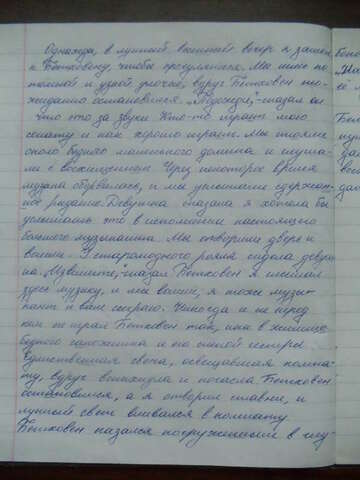 Однажды в лунный, зимний вечер я зашел
к Бетховену, чтобы прогуляться. Мы шли по
темной и узкой улочке, вдруг Бетховен нео-
жиданно остановился. „Подожди",-сказал он
что это за звуки Кто-то играет мою
сонату и как хорошо играет. Мы стояли
около бедного маленького домика и слуша-
ли с восхищением. Через некоторое время
музыка оборвалась, и мы услышали сдержан-
ное рыдание. Девушка сказала я хотела бы
услышать это в исполнении настоящего
большого музыканта. Мы отворили двери и
вошли. У старомодного рояля сидела девуш
ка. Извините,-сказал Бетховен я слышал
здесь музыку, и мы вошли, я тоже музы-
кант и вам сыграю. Никогда и не перед
кем не играл Бетховен так, как в жилище
бедного сапожника и его слепой сестры.
Единственная свеча, освещавшая комна-
ту, вдруг вспыхнула и погасла. Бетховен
остановился, а я отворил ставни, и
лунный свет влился в комнату.
Бетховен казался погруженным в глу-